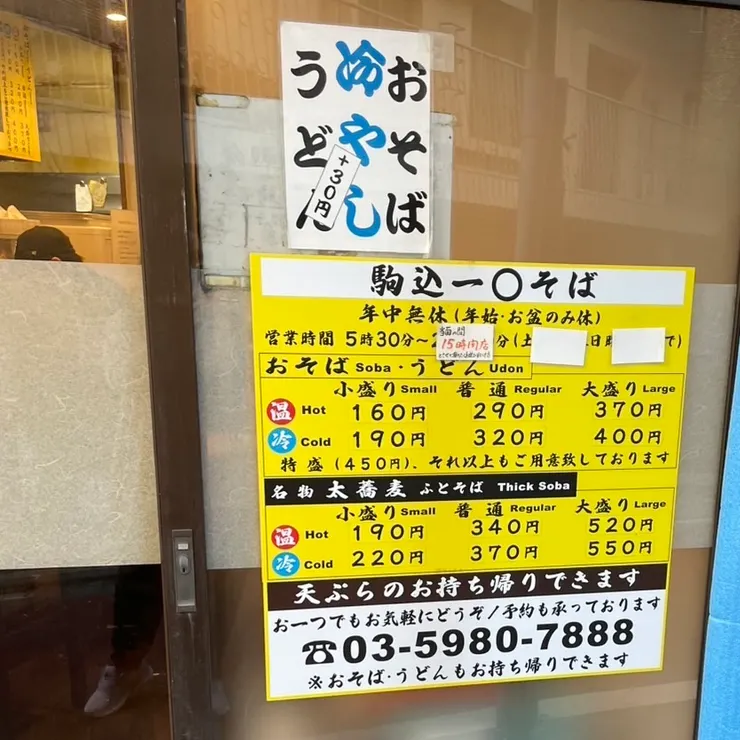 おそば
冷やし
うどん
+30円
駒込一〇そば
年中無休(年始・お盆のみ休)
営業時間 5時30分〜
当面の間
15時閉店
おそば Soba・うどん Udon
小盛り Small 普通 Regular 大盛り Large
温 Hot 160円 290円 370円
冷 Cold 190円 320円 400円
特盛(450円)、それ以上もご用意致しております
名物 太蕎麦 ふとそば Thick Soba
小盛り Small 普通 Regular 大盛り Large
温 Hot 190円 340円 520円
冷 Cold 220円 370円 550円
天ぷらのお持ち帰りできます
お一つでもお気軽にどうぞ/予約も承っております
☎03-5980-7888
※おそば・うどんもお持ち帰りできます